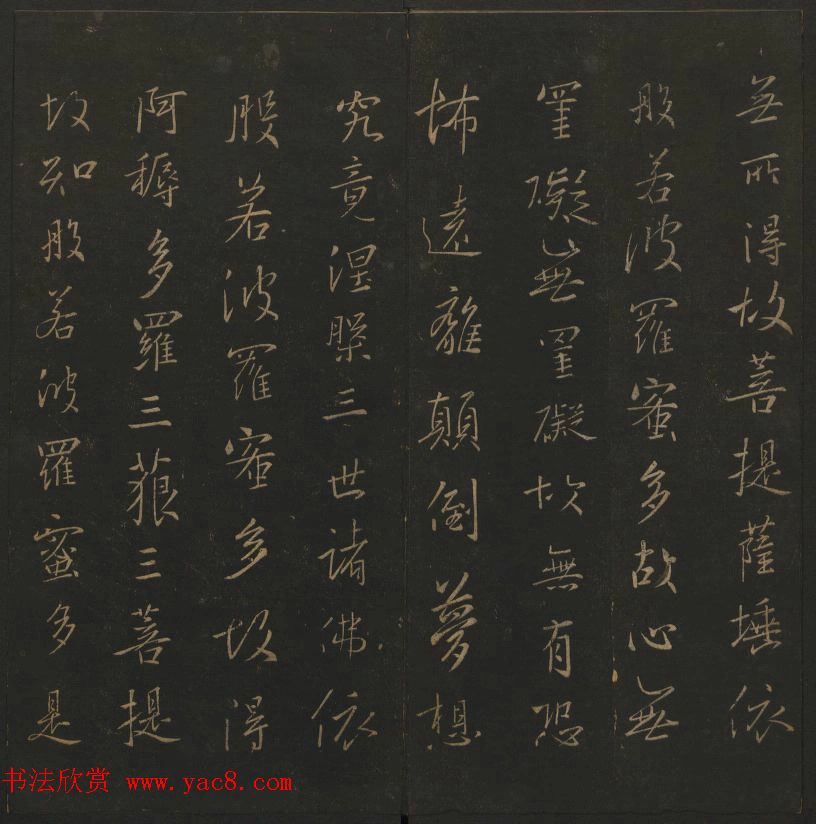 無所得故菩提薩埵依
般若波羅蜜多故心無
罣礙無罣礙故無有恐
怖遠離顛倒夢想
究竟涅槃三世諸佛依
般若波羅蜜多故得
阿耨多羅三藐三菩提
故知般若波羅蜜多是
书法欣赏 www.yac8.com